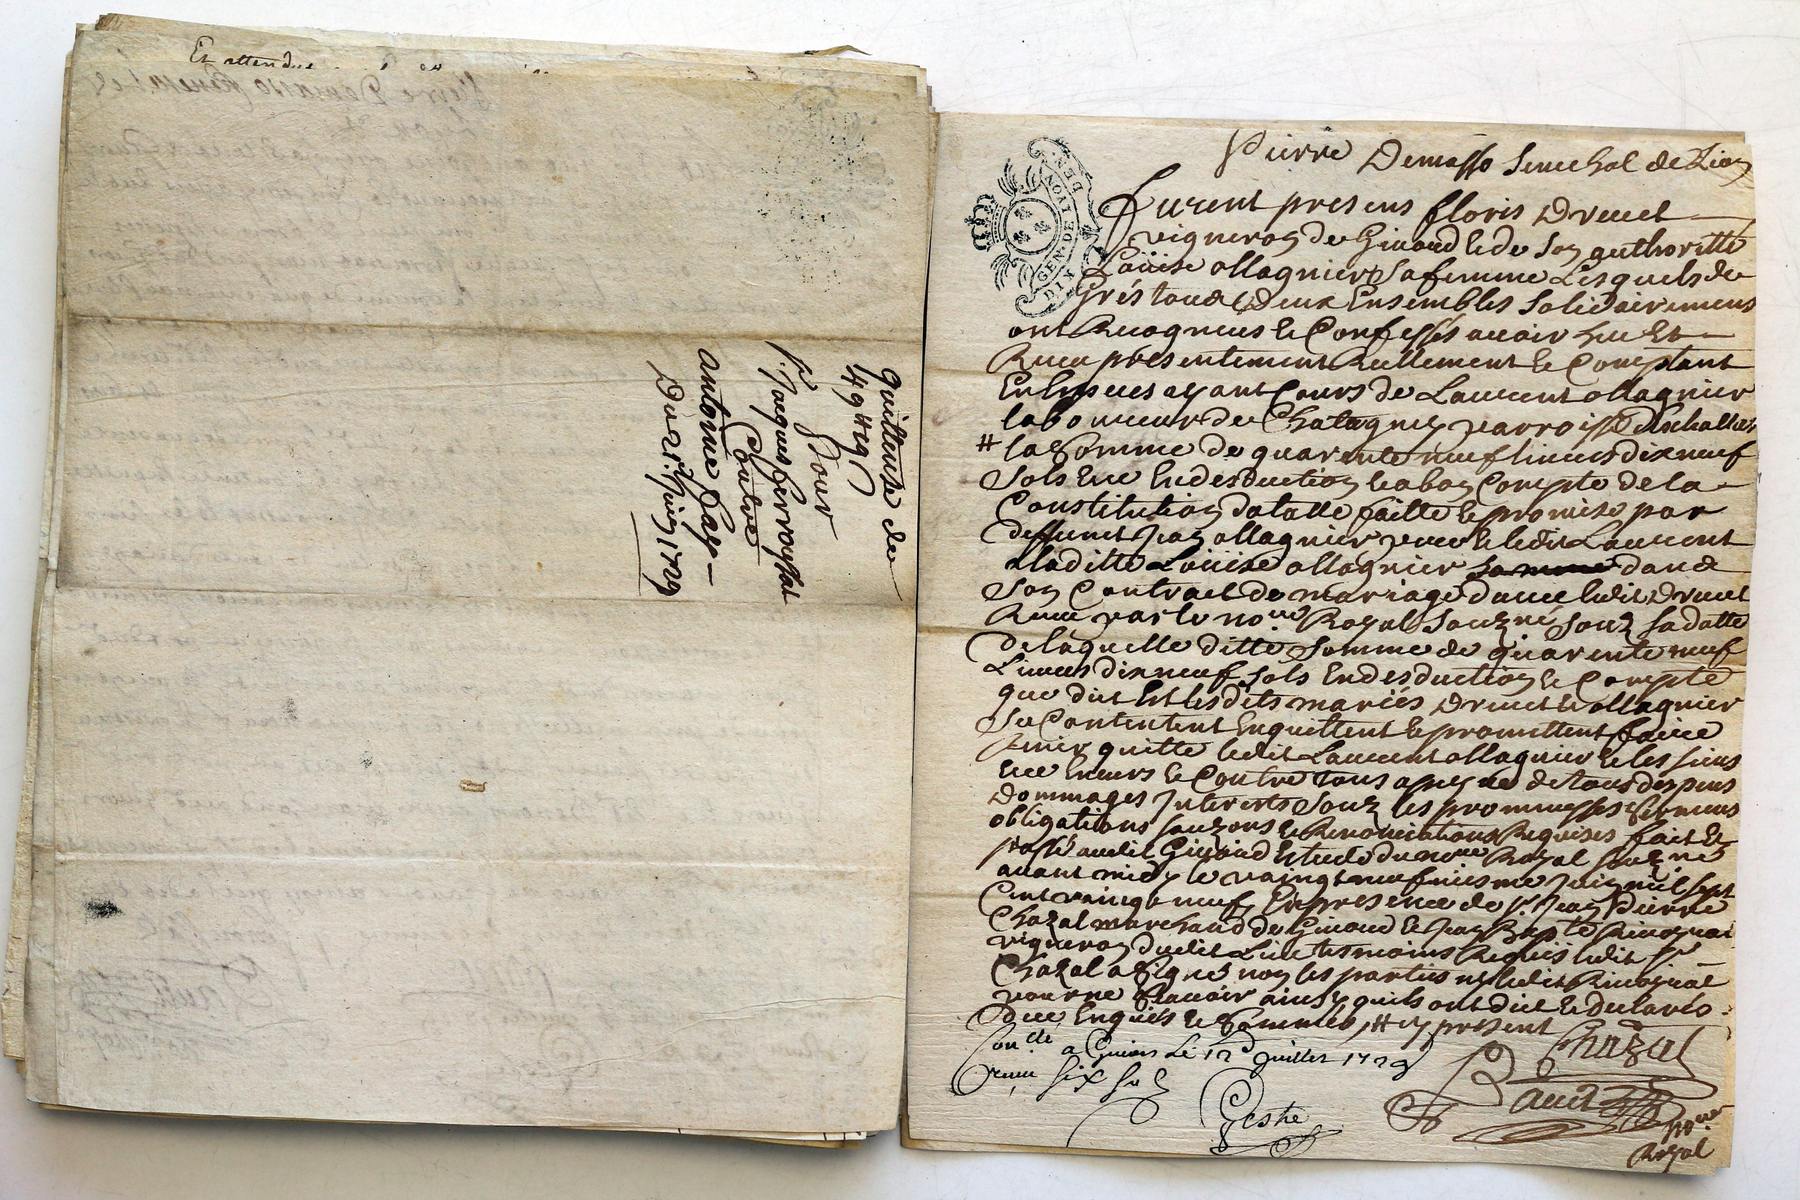 Et attendu
quittense de
49 # 19 s
pour
sr Jacques ferroussat
Contre
antoine fay
Du 21 Juin 1729
Pierre Demasso senechal de Lion
GEN. DE LION
Furent presens floris Drevet
vigneron de Givord & de son authoritté
Loüise ollagnier sa femme Lesquels de
Grés tous deux Ensembles solidairement
ont Recogneus & Confessés avoir heu Et
Receu presentement Reellement & Comptant
En Especes ayant Cours de Laurent ollagnier
laboureur de Chatagney parroisse
# la somme de quarente neuf livres dix neuf
sols Et ce En desduction & a bon Compte de la
Constitution dotalle faitte & promise par
deffunct Jean ollagnier pere & ledit Laurent
a laditte Loüise ollagnier dans
son Contract de mariage d'avec ledit Drevet
Receu par le nore Royal souzné souz sa datte
de laquelle ditte somme de quarente neuf
Livres dix neuf sols En desduction & Compte
que dit Est lesdits mariés Drevet & ollagnier
se Contentent En quittent & promettent faire
tenir quitte ledit Laurent ollagnier & les siens
Envers & Contre tous a peyne de tous despens
Dommages Interests souz les promesses serments
obligations souzmons & Renonciations Requises fait Et
passé audit Givord Estude du nore Royal souzné
avant midy le vaingt neufviesme Juin mil sept
Cent vaingt neuf En presence de sr Jean Pierre
Chazal marchand de Givord & Jean Bapte
vigneron dudit Lieu tesmoins Requis ledit sr
Chazal a signé non les parties ny ledit
pour ne scavoir ainsy quils ont dict & declarés
de ce Enquis & sommés, # cy present
Chazal
Conllé a Givors Le 12 Juillet 1729
Receu six sols
Geste
nore
Royal